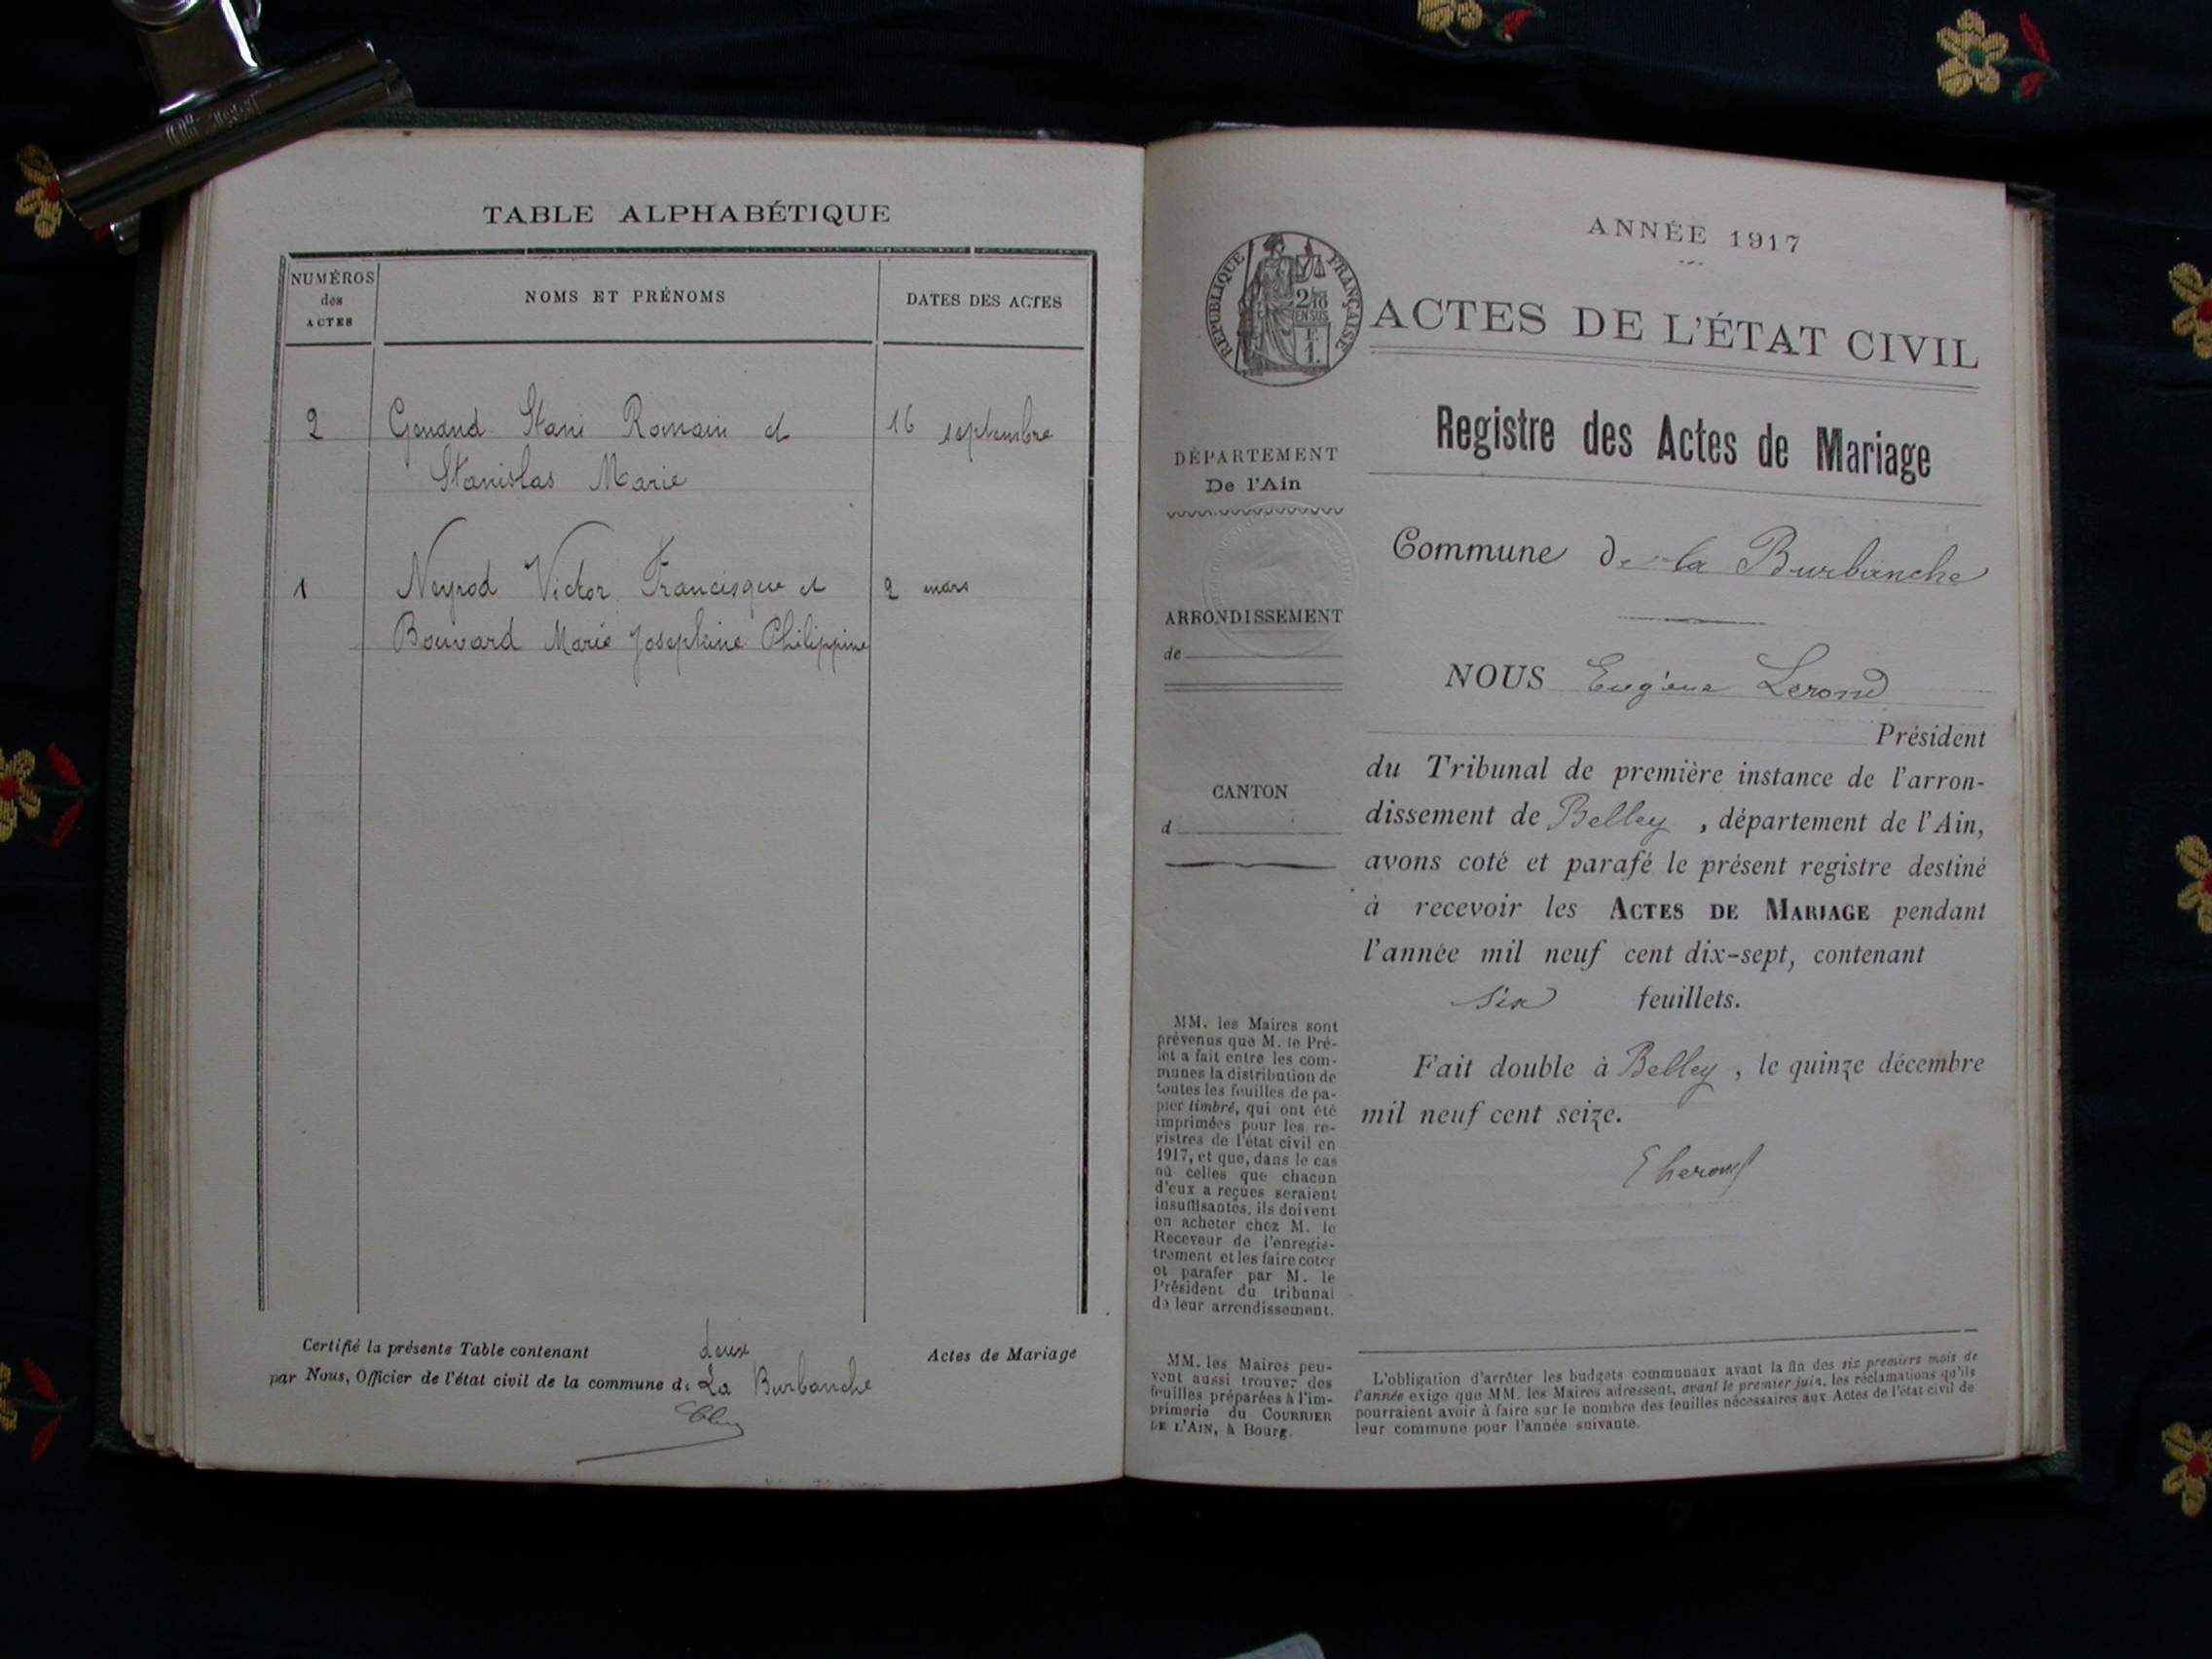 TABLE ALPHABÉTIQUE
NUMÉROS
des
ACTES
NOMS ET PRÉNOMS
DATES DES ACTES
2 Genand Stani Romain et 16 septembre
Stanislas Marie
1 Neyrod Victor Francisque et 2 mars
Bouvard Marie Joséphine Philippine
Certifié la présente Table contenant deux Actes de Mariage
par Nous, Officier de l'état civil de la commune de La Burbanche
ANNÉE 1917
RÉPUBLIQUE FRANÇAISE
2/10
EN SUS
F
1.
ACTES DE L'ÉTAT CIVIL
Registre des Actes de Mariage
DÉPARTEMENT
De l'Ain
ARRONDISSEMENT
de
CANTON
d
MM. les Maires sont
prévenus que M. le Pré-
fet a fait entre les com-
munes la distribution de
toutes les feuilles de pa-
pier timbré, qui ont été
imprimées pour les re-
gistres de l'état civil en
1917, et que, dans le cas
où celles que chacun
d'eux a reçues seraient
insuffisantes, ils doivent
en acheter chez M. le
Receveur de l'enregis-
trement et les faire coter
et parafer par M. le
Président du tribunal
de leur arrondissement.
MM. les Maires peu-
vent aussi trouver des
feuilles préparées à l'im-
primerie du COURRIER
DE L'AIN, à Bourg.
Commune de la Burbanche
NOUS Eugène Lerond
Président
du Tribunal de première instance de l'arron-
dissement de Belley, département de l'Ain,
avons coté et parafé le présent registre destiné
à recevoir les ACTES DE MARIAGE pendant
l'année mil neuf cent dix-sept, contenant
six feuillets.
Fait double à Belley, le quinze décembre
mil neuf cent seize.
E Lerond
L'obligation d'arrêter les budgets communaux avant la fin des six premiers mois de
l'année exige que MM. les Maires adressent, avant le premier juin, les réclamations qu'ils
pourraient avoir à faire sur le nombre des feuilles nécessaires aux Actes de l'état civil de
leur commune pour l'année suivante.